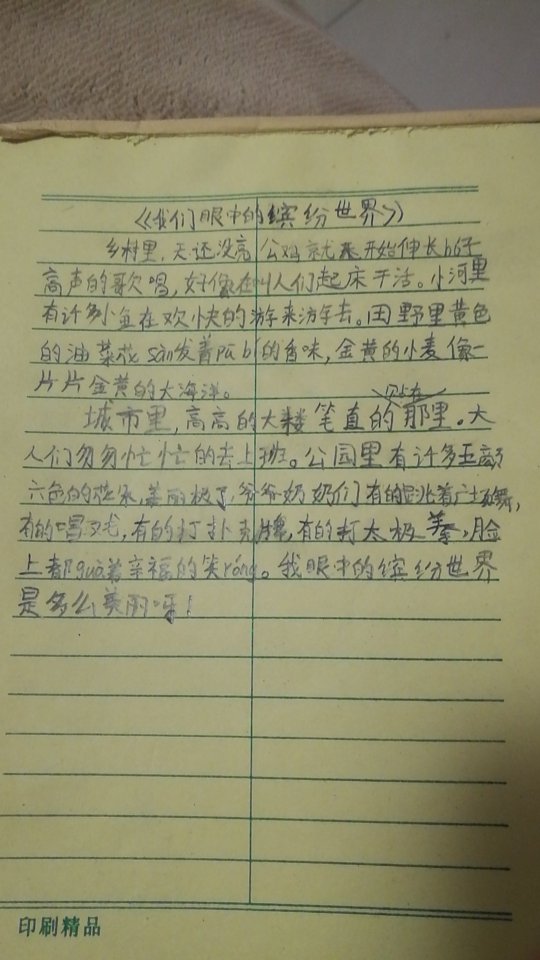 《我们眼中的缤纷世界》
乡村里,天还没亮,公鸡就开始伸长bó子
高声的歌唱,好像在叫人们起床干活。小河里
有许多小鱼在欢快的游来游去。田野里黄色
的油菜花sàn发着pū bí的香味,金黄的小麦像一
片片金黄的大海洋。
城市里,高高的大楼笔直的那里。大
人们匆匆忙忙的去上班。公园里有许多五颜
六色的花朵,美丽极了,爷爷奶奶们有的跳着广场舞,
有的唱戏,有的打扑克牌,有的打太极拳,脸
上都guà着幸福的笑róng。我眼中的缤纷世界
是多么美丽呀!
印刷精品